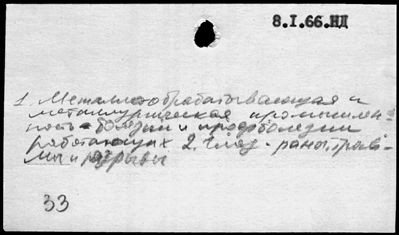 8.I.66.НД
1. Металлообрабатывающая и
металлургическая промышлен-
ность - болезни и профболезни
работающих 2. След. - ранен. трав-
мы и разрывы
33